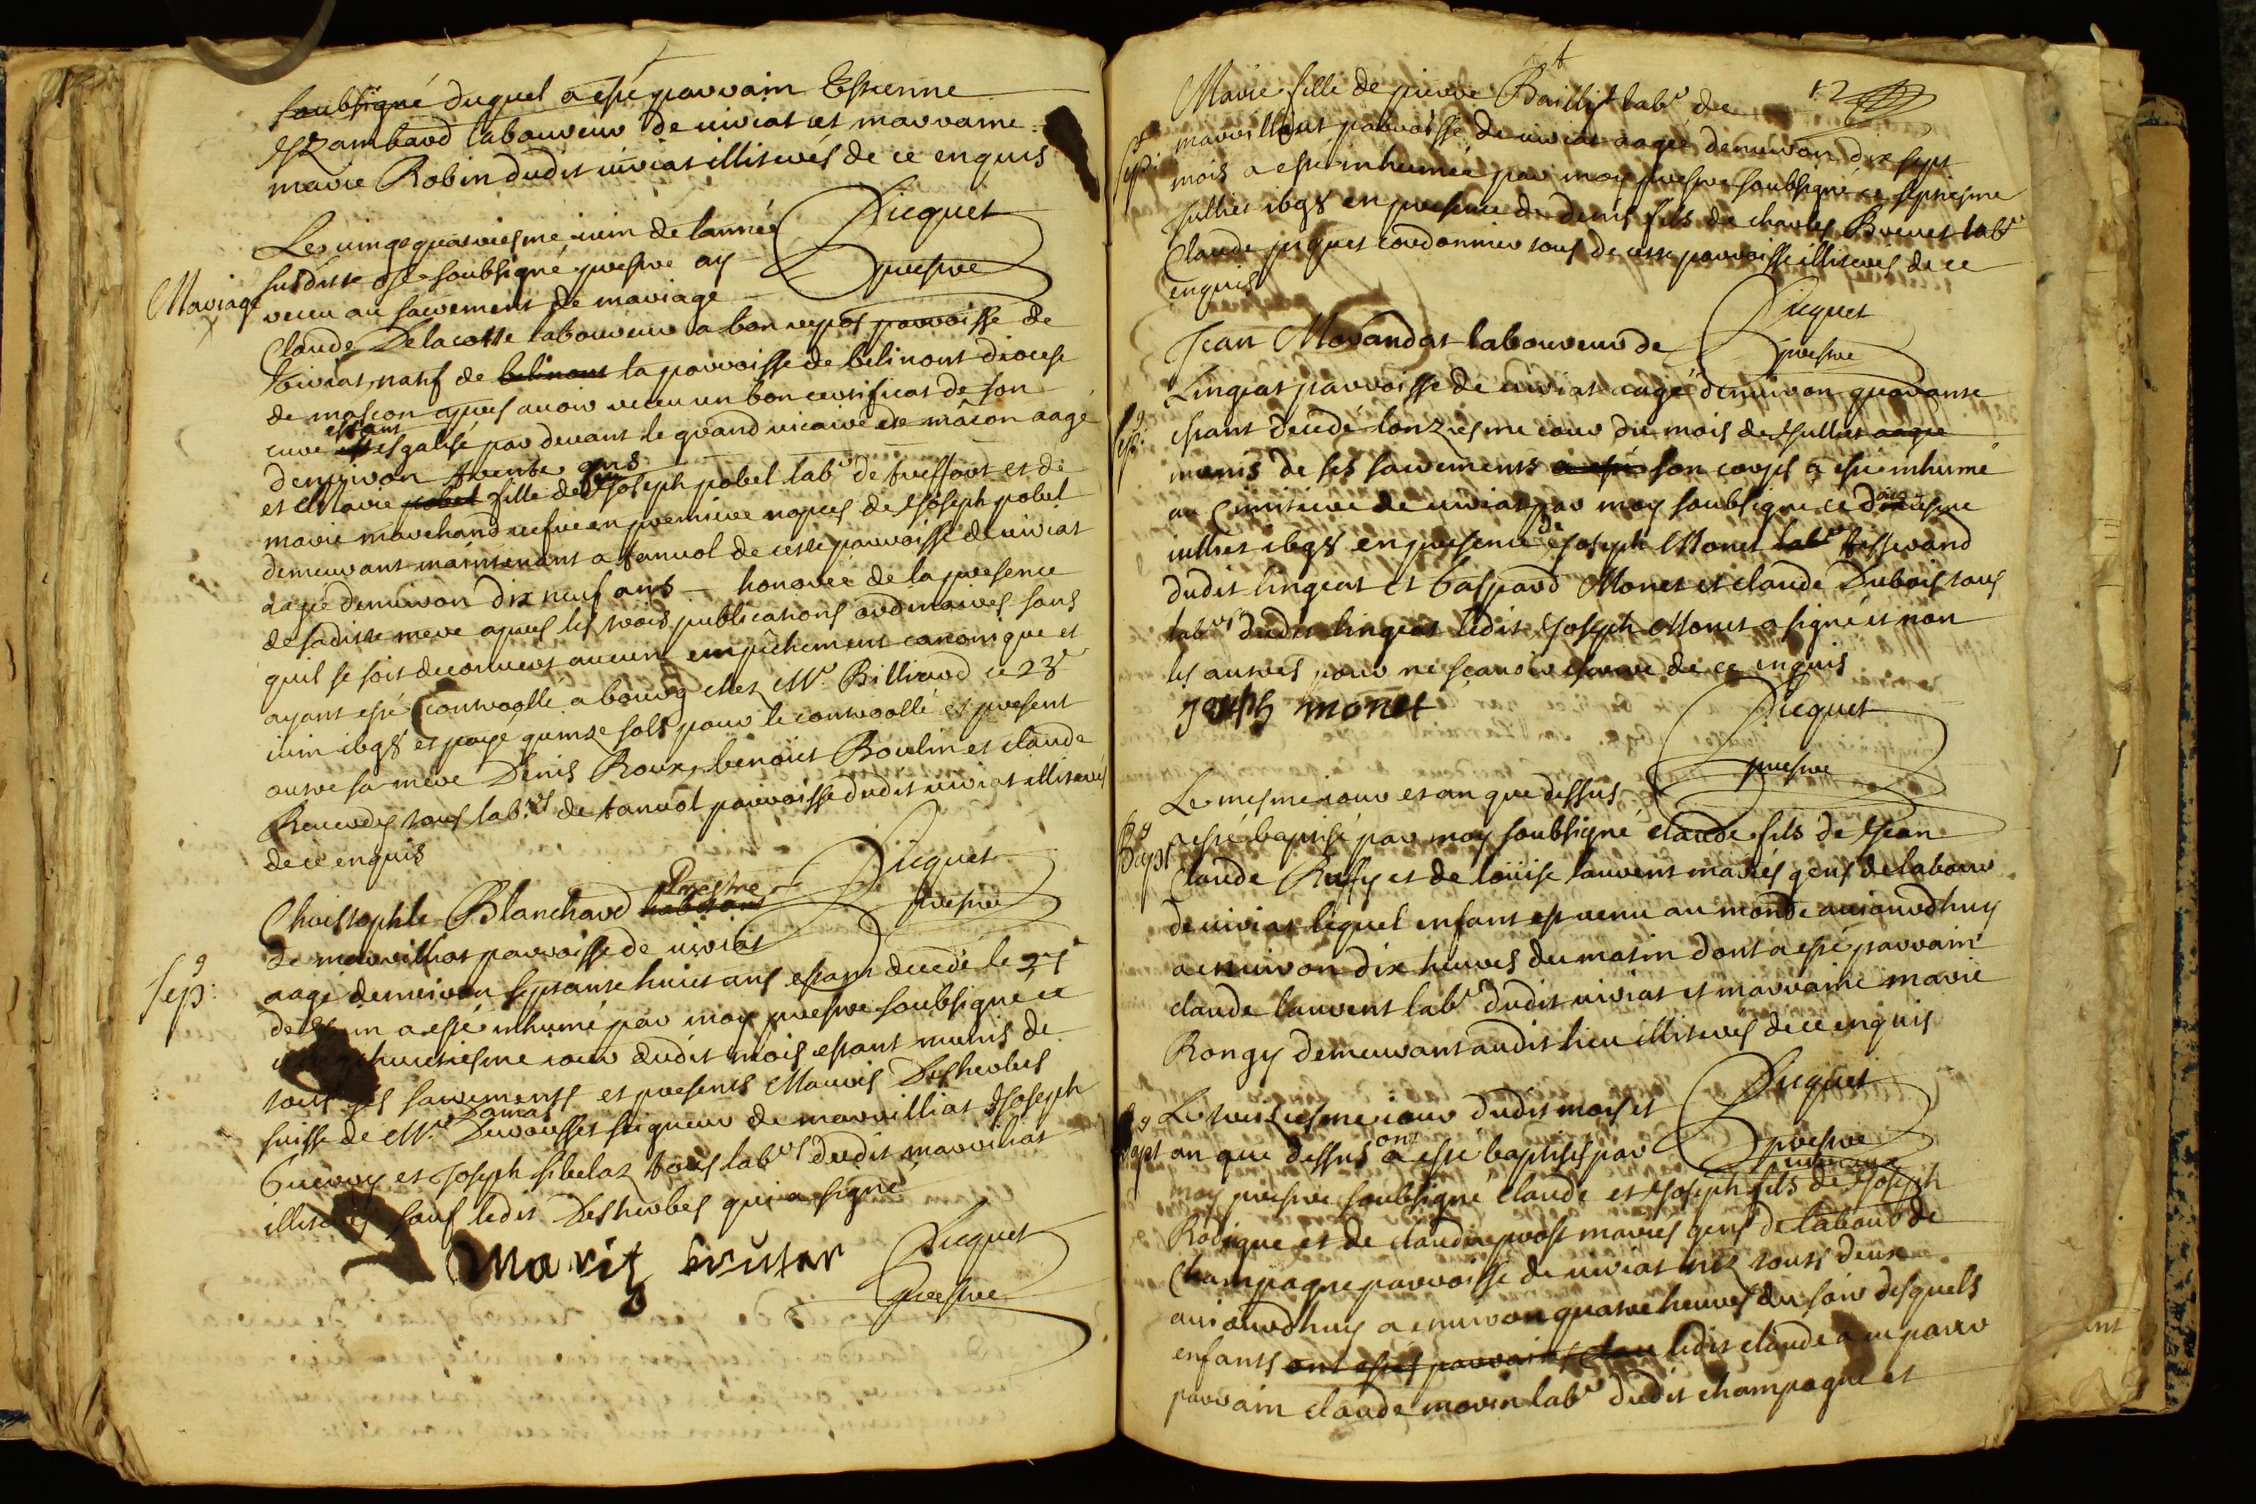 soubsigné duquel a esté parrain Estienne
Eszambard laboureur de viriat et marraine
marie Robin dudit viriat illiterés de ce enquis
Picquet
prestre
Mariage
Le vingt quatriesme iuin de lannée
susditte Je soubsigné prestre ay
receu au sacrement de mariage
Claude Delacotte laboureur a bon repos parroisse de
viriat, natif de belinont la parroisse de belinont diocese
de mascon apres auoir receu un bon certificat de son
curé estant esgalisé par deuant le grand vicaire de mâcon aagé
denuiron trente ans
et Marie pobel fille de Joseph pobel labr de treffort et de
marie marchand vefue en premiere nopces de Joseph pobel
demeurant maintenant a tanuol de cette parroisse de viriat
aagée denuiron dix neuf ans honorée de la presence
de saditte mere apres les trois publications ordinaires sans
quil se soit decouuert aucun empêchement canonique et
ayant esté controollé a bourg chez Mr. Billioud ce 23e
iuin 1698 et payé quinze sols pour le controolle et present
outre sa mere Denis Roux, benoict Boulin et claude
Reuerdy tous labrs de tanuol parroisse dudit viriat illiterés
de ce enquis
Picquet
prestre
sep:
Christophle Blanchard habitant Prestre
de marvilliat parroisse de viriat
aagé denuiron septante huict ans estant decedé le 27e
de iuin a esté inhumé par moy prestre soubsigné ce
huictiesme iour dudit mois estant munis de
tous ses sacrements et presents Mauris Desherbes
suisse de Mr. Damas Durousset seigneur de marvilliat Joseph
Guerry et Joseph sibelas tous labrs dudit marvilliat
illiterés sauf ledit Desherbes qui a signé
Picquet
prestre
12
sep:
Marie fille de pierre Baillif labr de
marvilliat parroisse de viriat aagée denuiron dix sept
mois a esté inhumée par moy prestre soubsigné ce septiesme
Jullet 1698 en presence de denis fils de charles Breuet labr
Claude piquet cordonnier tous de cette parroisse illiterés de ce
enquis
Picquet
prestre
sep:
Jean Morandat laboureur de
Lingeat parroisse de viriat aagé denuiron quarante
estant decedé lonziesme iour du mois de Jullet aagé
munis de ses sacrements a esté son corps a esté inhumé
au Cimitiere de viriat par moy soubsigné ce douziesme
iullet 1698 en presence de Joseph Monet labr tisserand
dudit lingeat et Gaspard Monet et claude Dubois tous
labrs dudit lingeat ledit Joseph Monet a signé et non
les autres pour ne sçauoir escrire de ce enquis
joseph monet
Picquet
prestre
Bapt
Le mesme iour et an que dessus
a esté baptisé par moy soubsigné claude fils de Jean
Claude Ruffy et de loüise laurent mariés gens de labour
de viriat lequel enfant est venu au monde auiourdhuy
a enuiron dix heures du matin dont a esté parrain
claude laurent labr dudit viriat et marraine marie
Rongy demeurant audit lieu illiterés de ce enquis
Picquet
prestre
Bapt
Le treiziesme iour dudit mois et
an que dessus ont a esté baptisés par
moy prestre soubsigné claude et Joseph fils de Joseph
Rodigue et de claudine prost mariés gens de labour de
Champagne parroisse de viriat nez touts deux
auiourdhuy a enuiron quatre heures du soir desquels
enfants ont estés parrains clau ledit claude a eu pour
parrain claude morin labr dudit champagne et